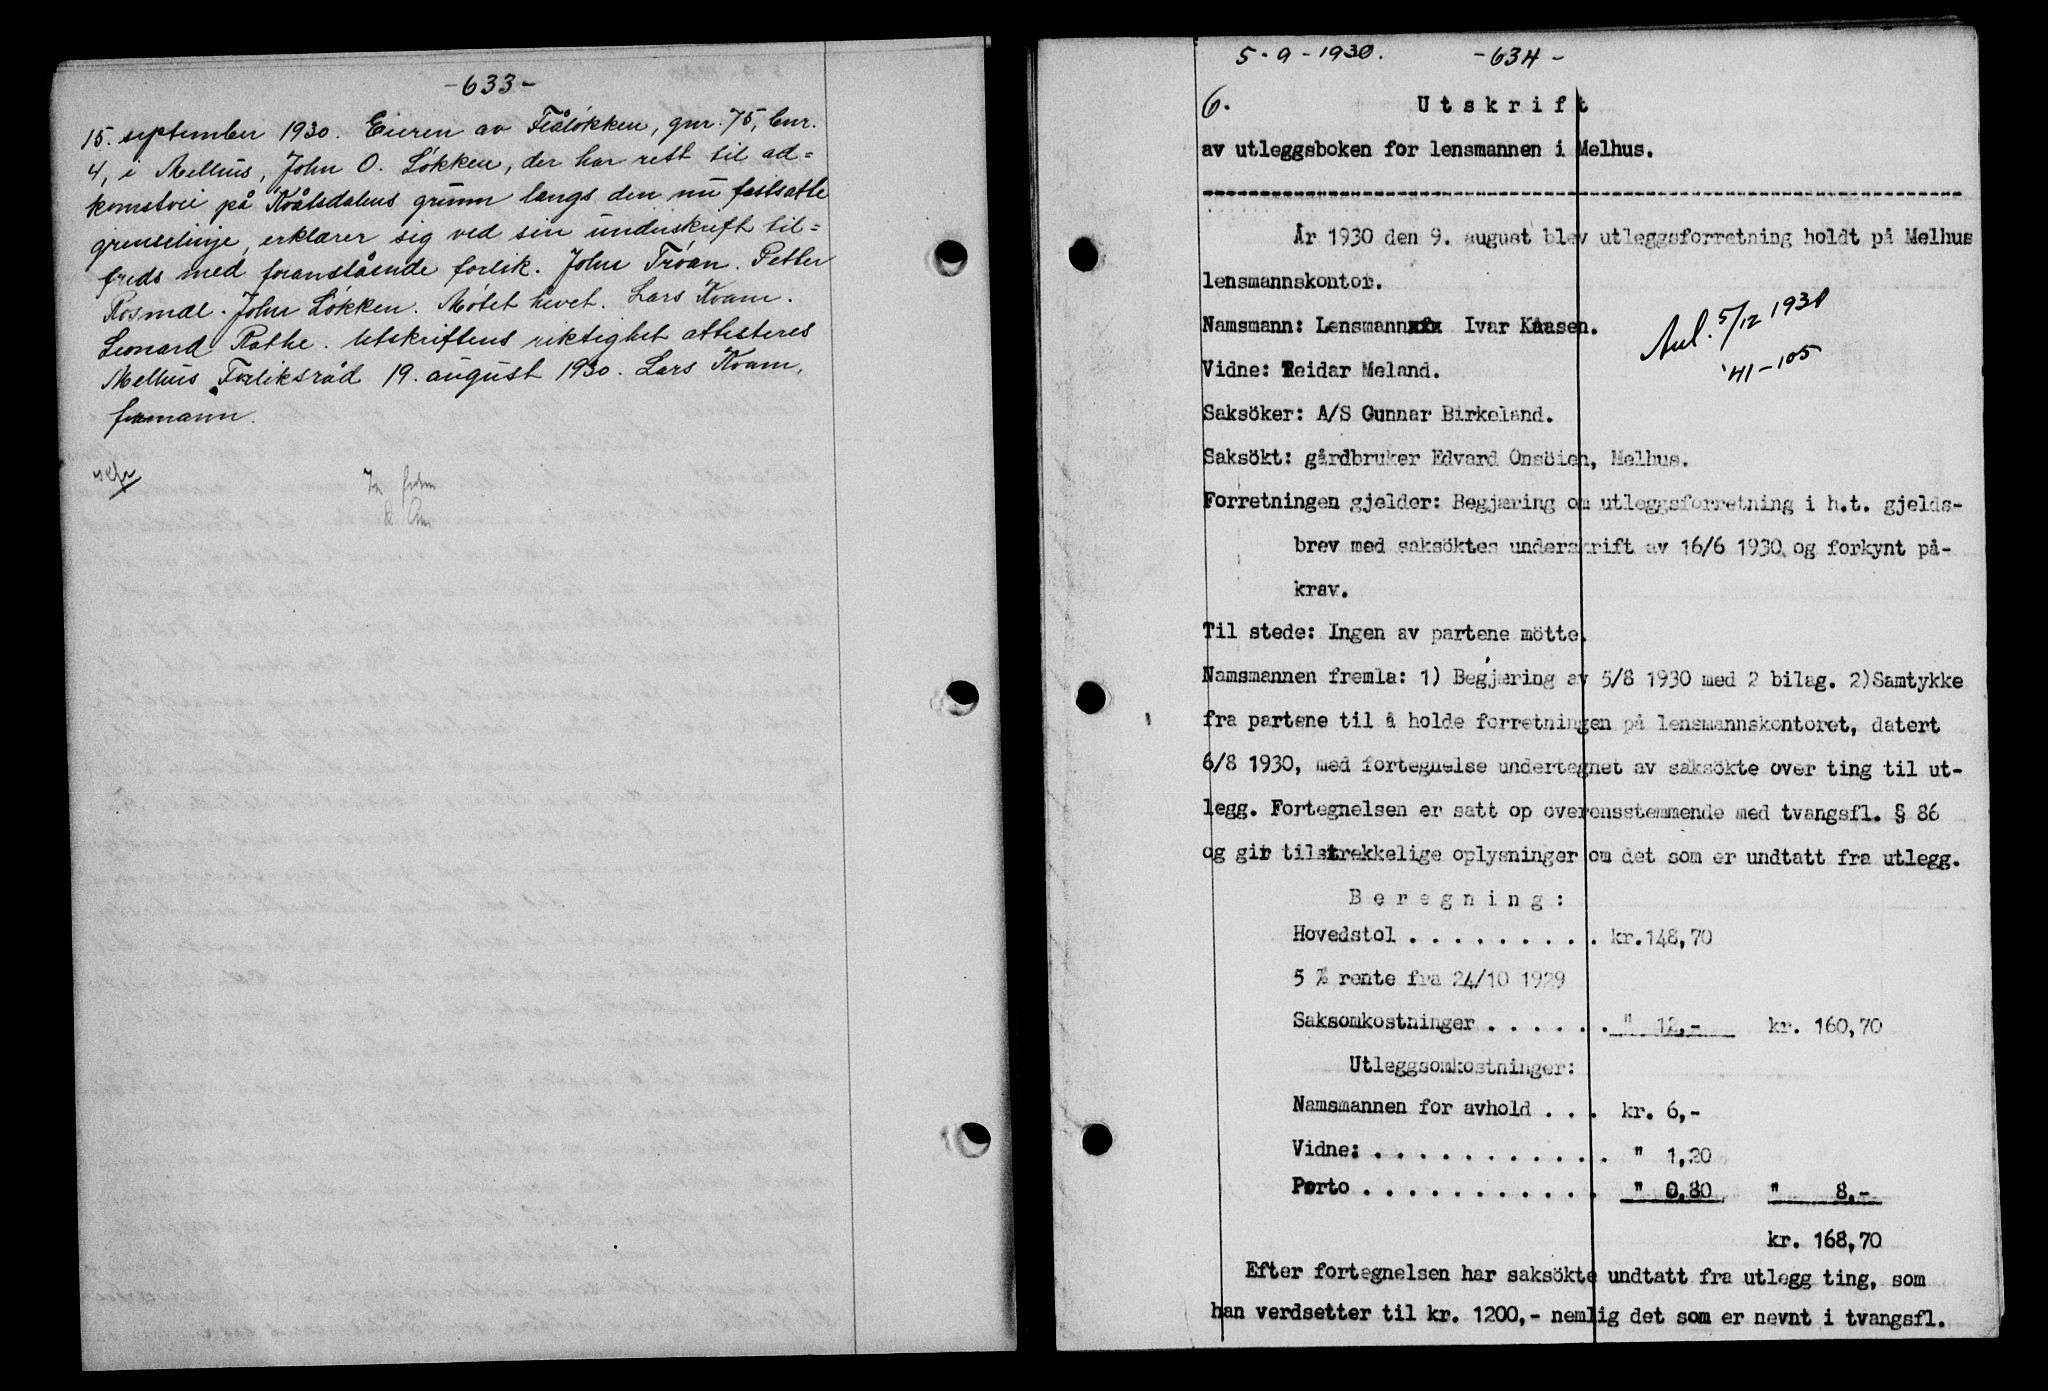 -633-
15. september 1930. Eieren av Flåløkken, gnr. 75, bnr.
4, i Melhus, John O. Løkken, der har rett til ad=
komstvei på Kvålsdalens grunn langs den nu fastsatte
grenselinje, erklærer sig ved sin underskrift til=
freds med foranstående forlik. John Trøan. Petter
Rosmæl. John Løkken. Møtet hevet. Lars Kvam.
Leonard Rathe. Utskriftens riktighet attesteres
Melhus Forliksråd 19. august 1930. Lars Kvam,
formann.
5-9-1930. -634-
6. Utskrift
av utleggsboken for lensmannen i Melhus.
År 1930 den 9. august blev utleggsforretning holdt på Melhus
lensmannskontor.
Namsmann: Lensmann Ivar Kaasen.
Avl. 5/12 1930
'41-105
Vidne: Reidar Meland.
Saksöker: A/S Gunnar Birkeland.
Saksökt: gårdbruker Edvard Onsöien, Melhus.
Forretningen gjelder: Begjæring om utleggsforretning i h.t. gjelds-
brev med saksöktes underskrift av 16/6 1930 og forkynt på-
krav.
Til stede: Ingen av partene mötte.
Namsmannen fremla: 1) Begjæring av 5/8 1930 med 2 bilag. 2)Samtykke
fra partene til å holde forretningen på lensmannskontoret, datert
6/8 1930, med fortegnelse undertegnet av saksökte over ting til ut-
legg. Fortegnelsen er satt op overensstemmende med tvangsfl. § 86
og gir tilstrekkelige oplysninger om det som er undtatt fra utlegg.
Beregning:
Hovedstol . . . . . . . . . kr.148,70
5 % rente fra 24/10 1929
Saksomkostninger . . . . . . " 12,- kr. 160,70
Utleggsomkostninger:
Namsmannen for avhold . . . kr. 6,-
Vidne: . . . . . . . . . . . " 1,20
Porto . . . . . . . . . . . " 0,80 " 8,-
kr. 168,70
Efter fortegnelsen har saksökte undtatt fra utlegg ting, som
han verdsetter til kr. 1200,- nemlig det som er nevnt i tvangsfl.